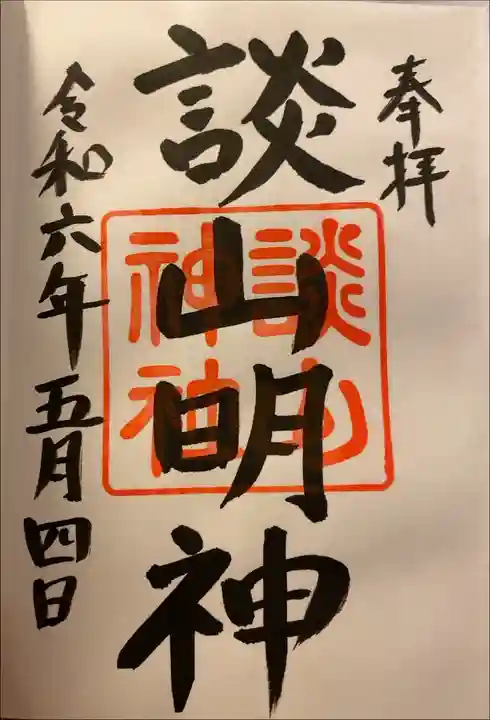 奉拝
談山明神
談山
神社
令和六年五月四日